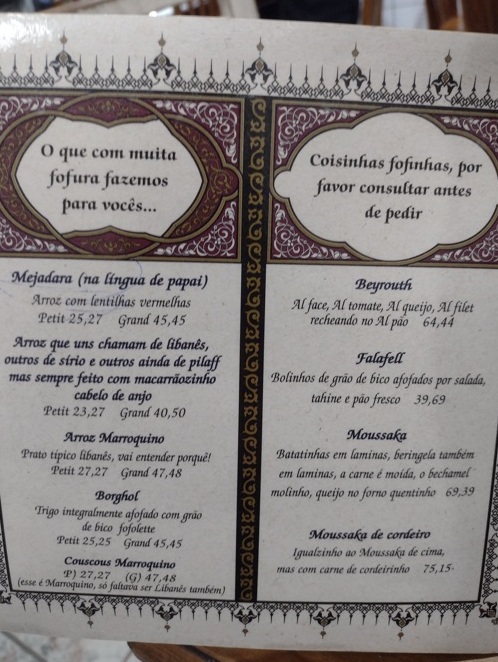 O que com muita
fofura fazemos
para vocês...
Mejadara (na língua de papai)
Arroz com lentilhas vermelhas
Petit 25,27 Grand 45,45
Arroz que uns chamam de libanês,
outros de sírio e outros ainda de pilaff
mas sempre feito com macarrãozinho
cabelo de anjo
Petit 23,27 Grand 40,50
Arroz Marroquino
Prato típico libanês, vai entender porquê!
Petit 27,27 Grand 47,48
Borghol
Trigo integralmente afofado com grão
de bico fofolette
Petit 25,25 Grand 45,45
Couscous Marroquino
P) 27,27 (G) 47,48
(esse é Marroquino, só faltava ser Libanês também)
Coisinhas fofinhas, por
favor consultar antes
de pedir
Beyrouth
Al face, Al tomate, Al queijo, Al filet
recheando no Al pão 64,44
Falafell
Bolinhos de grão de bico afofados por salada,
tahine e pão fresco 39,69
Moussaka
Batatinhas em laminas, beringela também
em laminas, a carne é moída, o bechamel
molinho, queijo no forno quentinho 69,39
Moussaka de cordeiro
Igualzinho ao Moussaka de cima,
mas com carne de cordeirinho 75,15